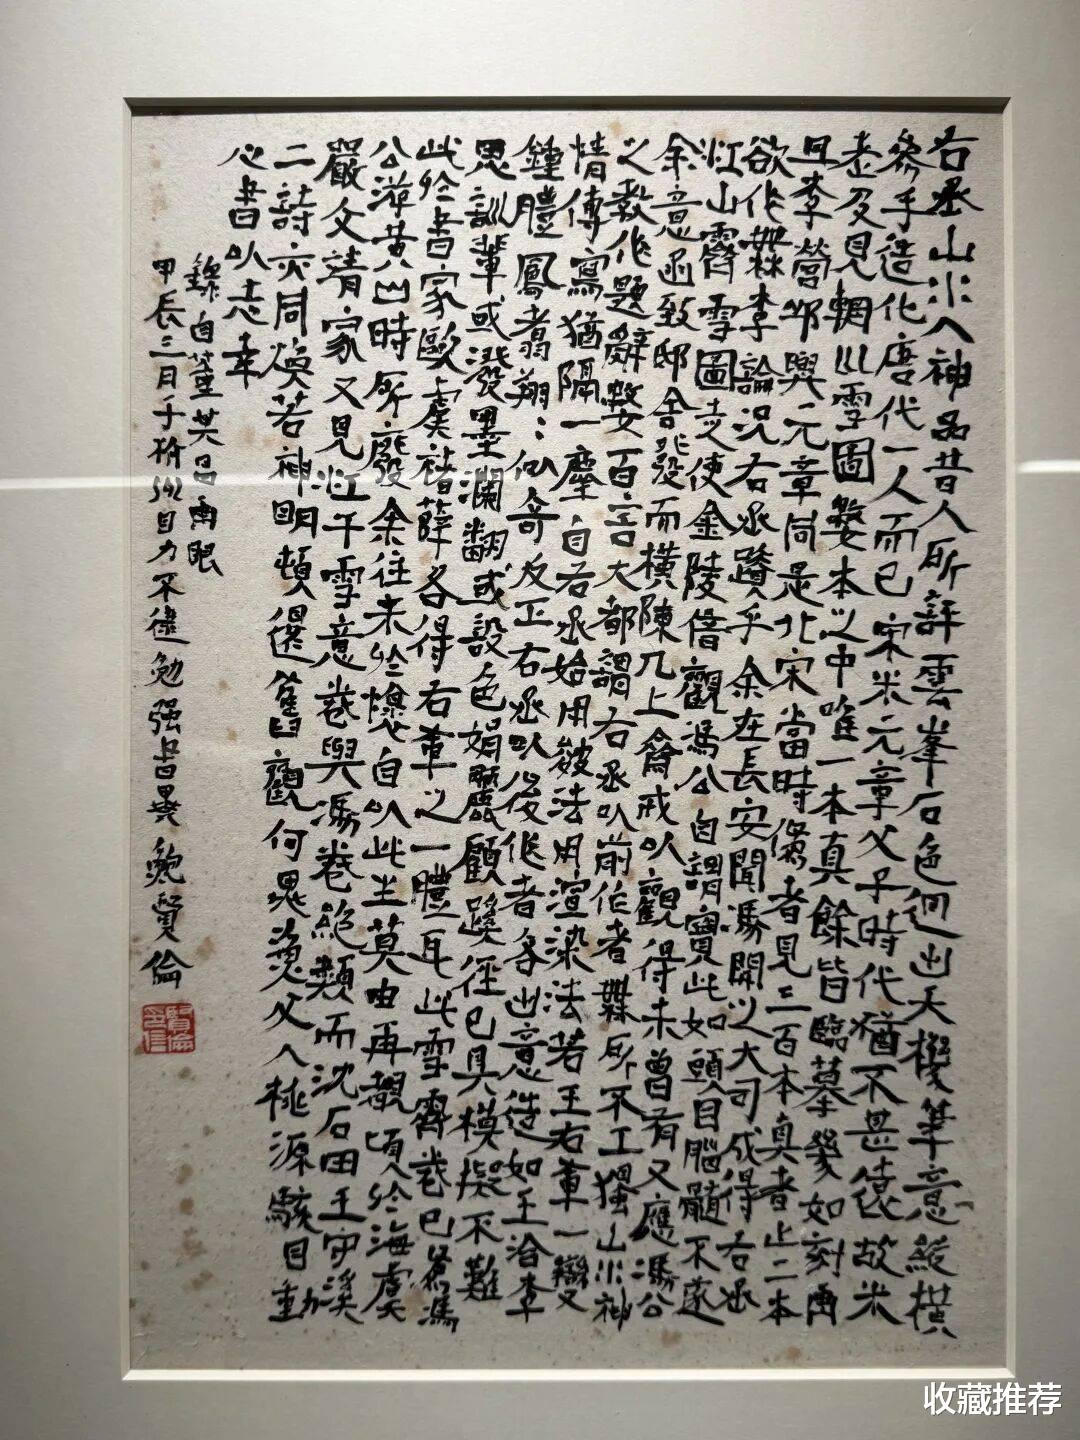 右丞山水入神品昔人所評雲峯石色迥出天機筆意縱橫
參乎造化唐代一人而已宋米元章父子時代猶不甚遠故米
老及見輞川雪圖數本之中唯一本真餘皆臨摹幾如刻畫
且李營邱與元章同是北宋當時偽者見三百本真者止二本
欲作無李論況右丞蹟乎余在長安聞馮開之大司成得右丞
江山霽雪圖走使金陵借觀馮公自謂寶此如頭目腦髓不逆
余意函致邸舍發而橫陳几上齋戒以觀得未曾有又應馮公
之教作題辭數百言大都謂右丞以前作者無所不工獨山水神
情傳寫猶隔一塵自右丞始用皴法用渲染法若王右軍一變
鍾體鳳翥翔:似奇反正右丞以後作者各出意造如王洽李
思訓輩或潑墨瀾翻或設色娟麗顧蹊徑已具模擬不難
此於書家歐虞褚薛各得右軍之一體耳此雪霽卷已為馮
公游黃山時所廢余往來於懷自以此生莫由再覩頃於海虞
嚴文靖家又見江干雪意卷與馮卷絕類而沈石田王守溪
二詩亦同煥若神明頓還舊觀何異漁父入桃源駭目動
心書以志幸
錄自董其昌画眼
甲辰三月于 目力不逮勉强書畢 賢倫
賢倫
收藏推荐